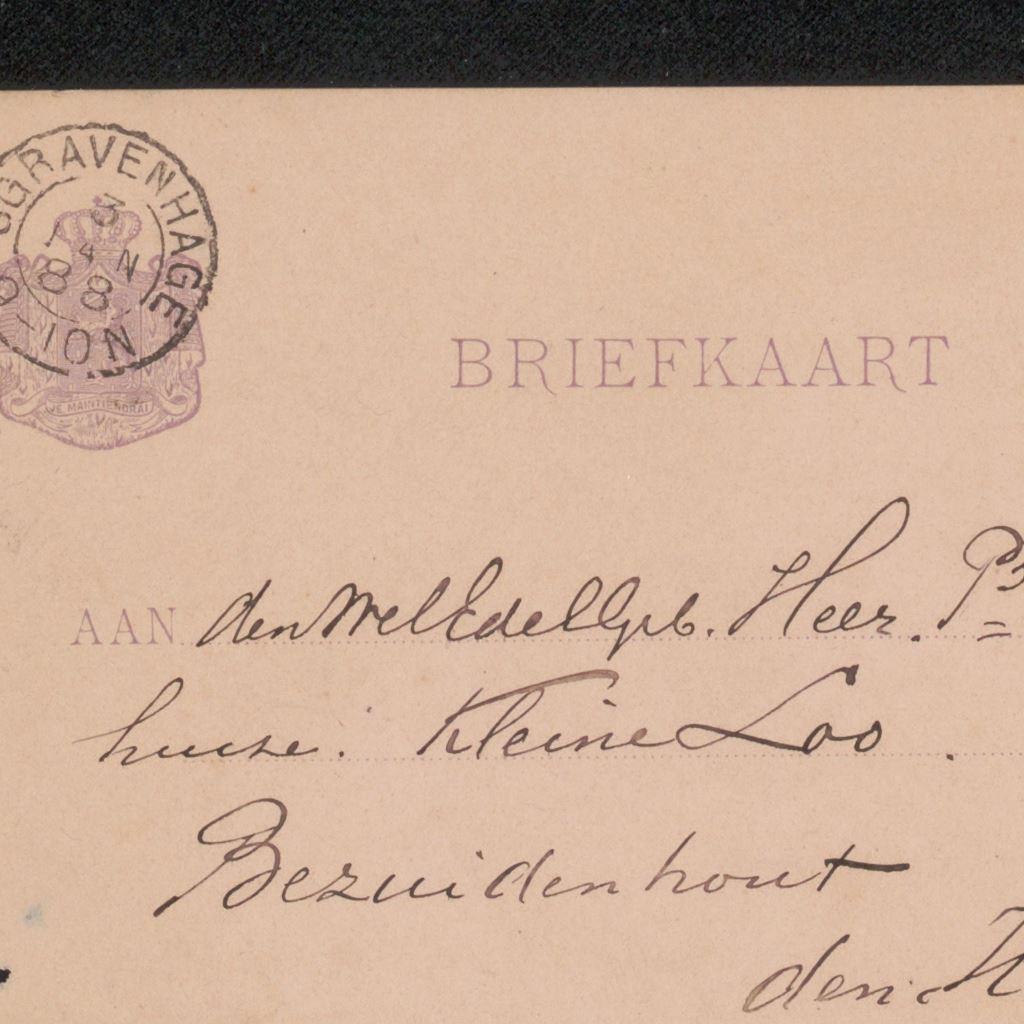 'SGRAVENHAGE
3
4 N
88
NOI
JE MAINTIENDRAI
BRIEFKAART
AAN den WelEdelGeb. Heer.
huize. Kleine Loo.
Bezuidenhout
den.